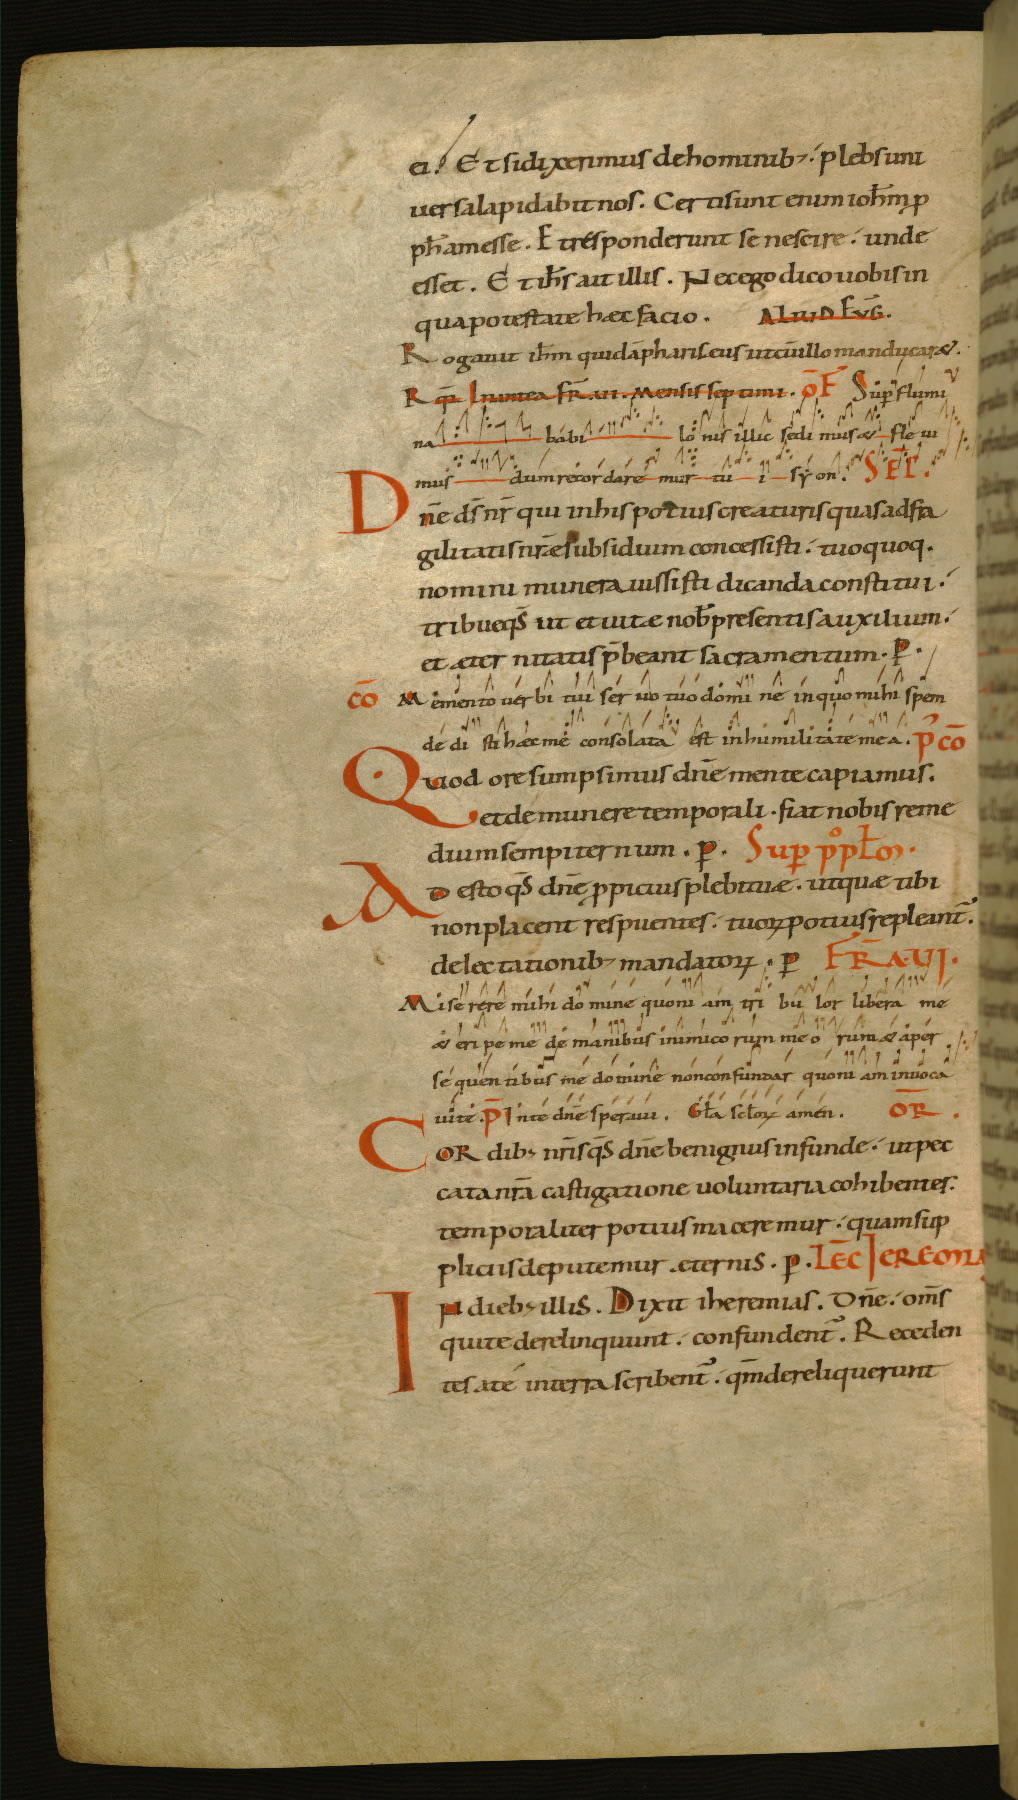 ei. Et si dixerimus de hominib; plebs uni
uersa lapidabit nos. Certi sunt enim ioħm p
pħam esse. Et responderunt se nescire. unde
esset. Et iħs ait illis. Nec ego dico uobis in
qua potestate hæc facio. ALIUD EVG̅.
Rogauit iħm quidā phariseus ut cū illo manducaræ.
R q̅ Inuenta FR̅. VI. Mensis septimi. OF̅ Sup flumi
na babi lo nis illic sedi mus æ fle ui
mus dum recordare mur tu i syon. SEC̅.
Dn̅e ds̅ nr̅ qui in his potius creaturis quas ad fra
gilitatis nr̅æ subsidium concessisti. tuo quoq.
nomini munera iussisti dicanda constitui.
tribue qs̅ ut et uitæ nob̅ presentis auxilium.
et æternitatis p̅beant sacramentum. P.
CO̅ Memento uerbi tui seruo tuo domine in quo mihi spem
dedi sti hæc me consolata est in humilitate mea. p̅ co̅
Quod ore sumpsimus dn̅e mente capiamus.
et de munere temporali. fiat nobis reme
dium sempiternum. P. Sup pop̅lm.
Adesto qs̅ dn̅e ppicius plebi tuæ. ut quæ tibi
non placent respuentes. tuoꝝ potius repleant̅.
delectationib; mandatoꝝ. P FR̅A. VI.
Miserere mihi domine quoniam tri bu lor libera me
æ eripe me de manibus inimicorum meorum & a per
sequentibus me domine non confundar quoniam inuoca
ui te. P̅ In te dn̅e speraui. Gl̅a sc̅loꝝ amen. OR̅.
CORdib; nr̅is qs̅ dn̅e benignus infunde. ut pec
cata nr̅a castigatione uoluntaria cohibentes.
temporaliter potius maceremur. quam sup
pliciis deputemur æternis. P. LEC̅ IEREMIA
IN dieb; illis. Dixit iheremias. Dn̅e. om̅s
qui te derelinquunt. confundent̅. Receden
tes a te in terra scribent̅. qm̅ dereliquerunt